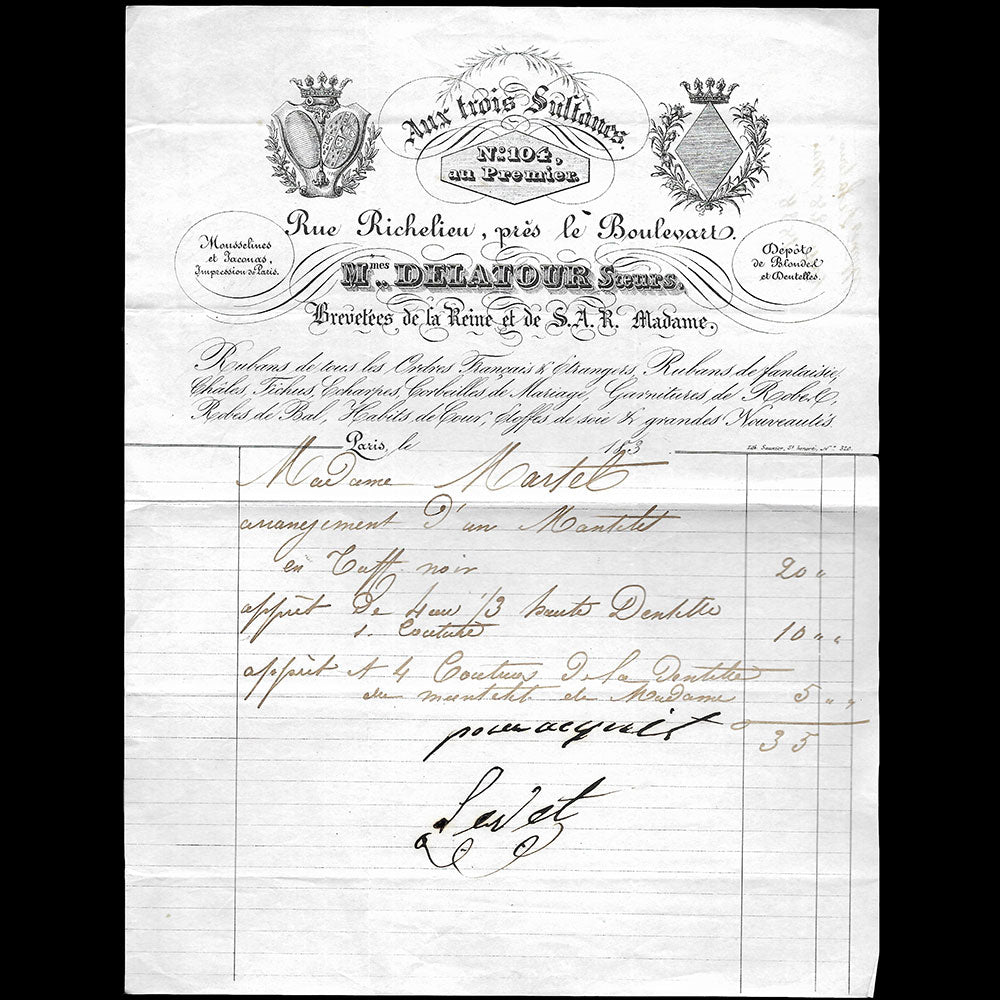 Aux trois Sultanes.
N.º 104,
au Premier.
Rue Richelieu, près le Boulevart.
Mousselines
et Jaconas,
Impression de Paris.
Mmes DELATOUR Sœurs,
Dépôt
de Blondes
et Dentelles.
Brevetées de la Reine et de S.A.R. Madame.
Rubans de tous les Ordres Français & Etrangers, Rubans de fantaisie,
Châles, Fichus, Echarpes, Corbeilles de Mariage, Garnitures de Robes,
Robes de Bal, Habits de Cour, Etoffes de soie & grandes Nouveautés
Paris, le 1853
Lith. Saunier, St. honoré, No. 320.
Madame Martel
arrangement d'un Mantelet
en Taff. noir 20 "
apprêt de 4 au 1/3 haute Dentelle
1. Couture 10 " "
apprêt et 4 Coutures de la Dentelle
du mantelet de Madame 5 " "
pour acquit 35
Levet